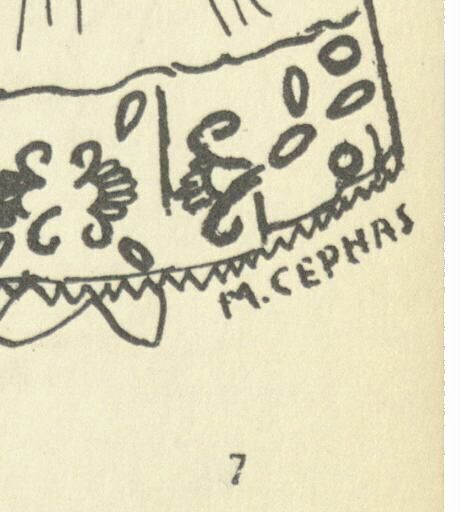 M. CEPHAS
7